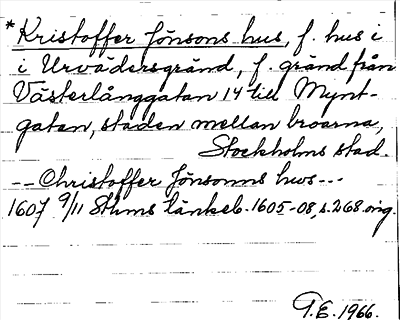 *Kristoffer Jönsons hus, f. hus i
i Urvädersgränd, f. gränd från
Västerlånggatan 14 till Mynt-
gatan, staden mellan broarna,
Stockholms stad.
-- Christoffer Jönsonns hws ---
1607 9/11 Sthms tänkeb. 1605-08, s. 268 orig.
T.E. 1966.